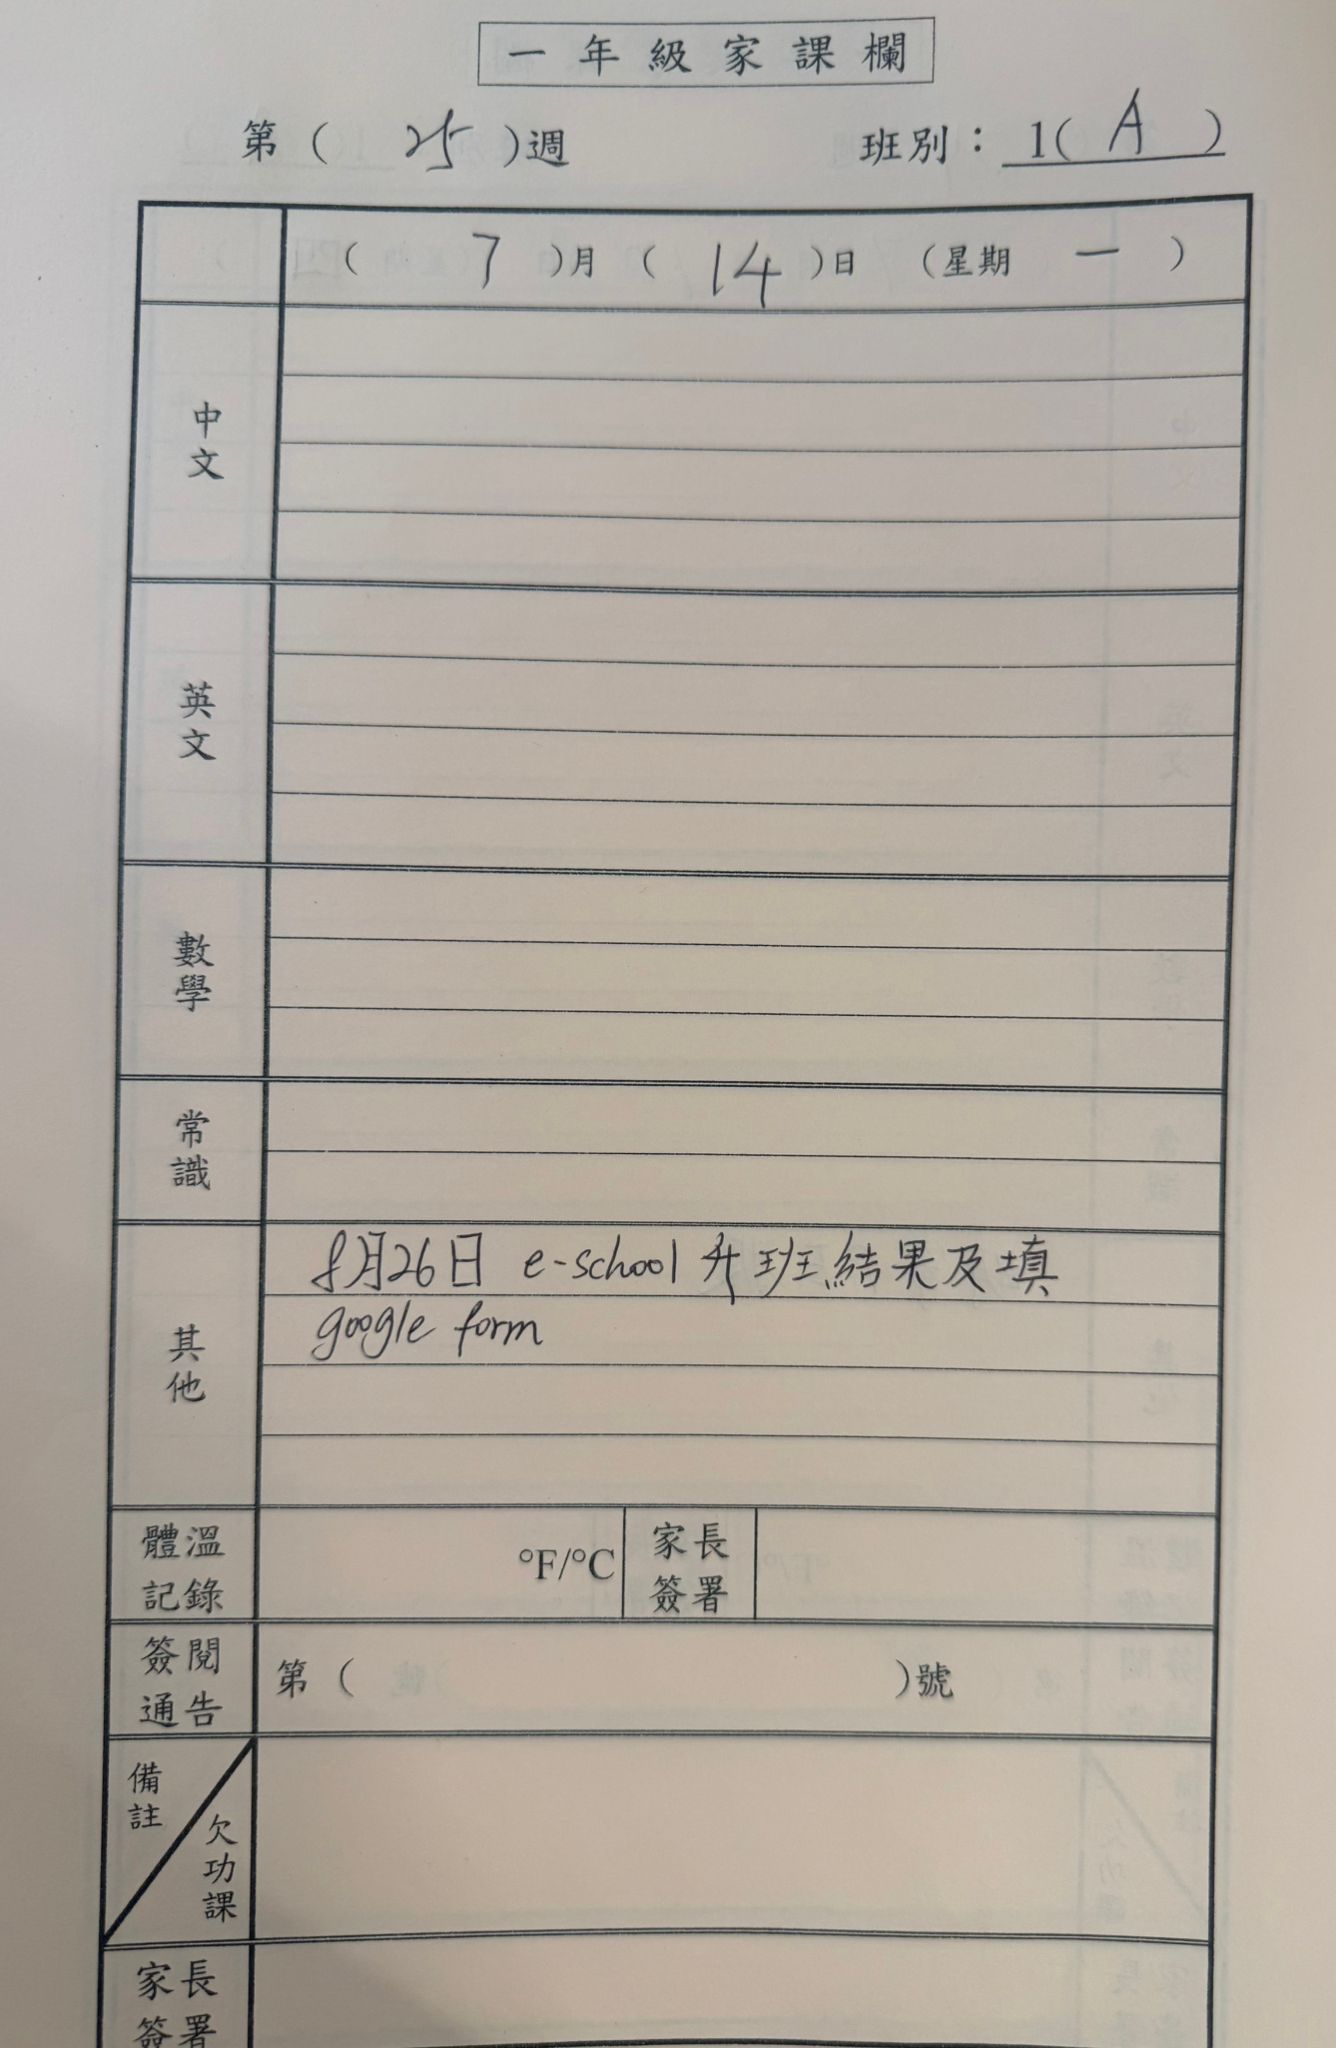 一年級家課欄
第（ 25 ）週 班別：1( A )
（ 7 ）月（ 14 ）日 （星期 一 ）
中文
英文
數學
常識
其他
8月26日 e-school 升班結果及填
google form
體溫記錄 °F/°C 家長簽署
簽閱通告 第（ ）號
備註 欠功課
家長簽署